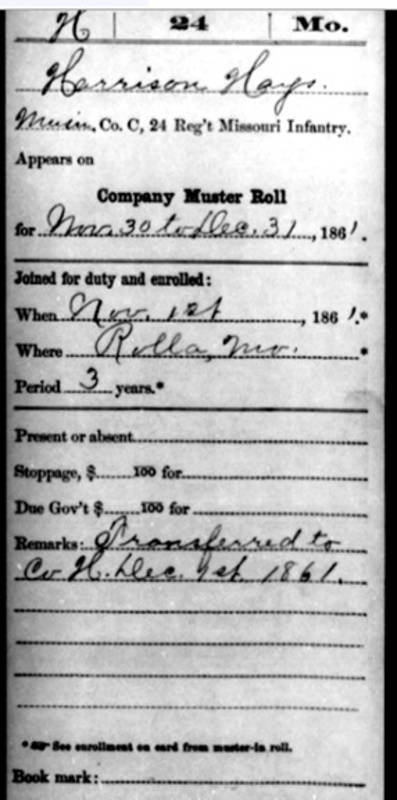 H | 24 | Mo.
Harrison Hays.
Musin, Co. C, 24 Reg't Missouri Infantry.
Appears on
Company Muster Roll
for Nov. 30 to Dec. 31, 1861.
Joined for duty and enrolled:
When Nov. 1st, 1861.*
Where Rolla, Mo. *
Period 3 years.*
Present or absent
Stoppage, $ 100 for
Due Gov't $ 100 for
Remarks: Transferred to
Co H. Dec. 1st 1861.
* See enrollment on card from muster-in roll.
Book mark: